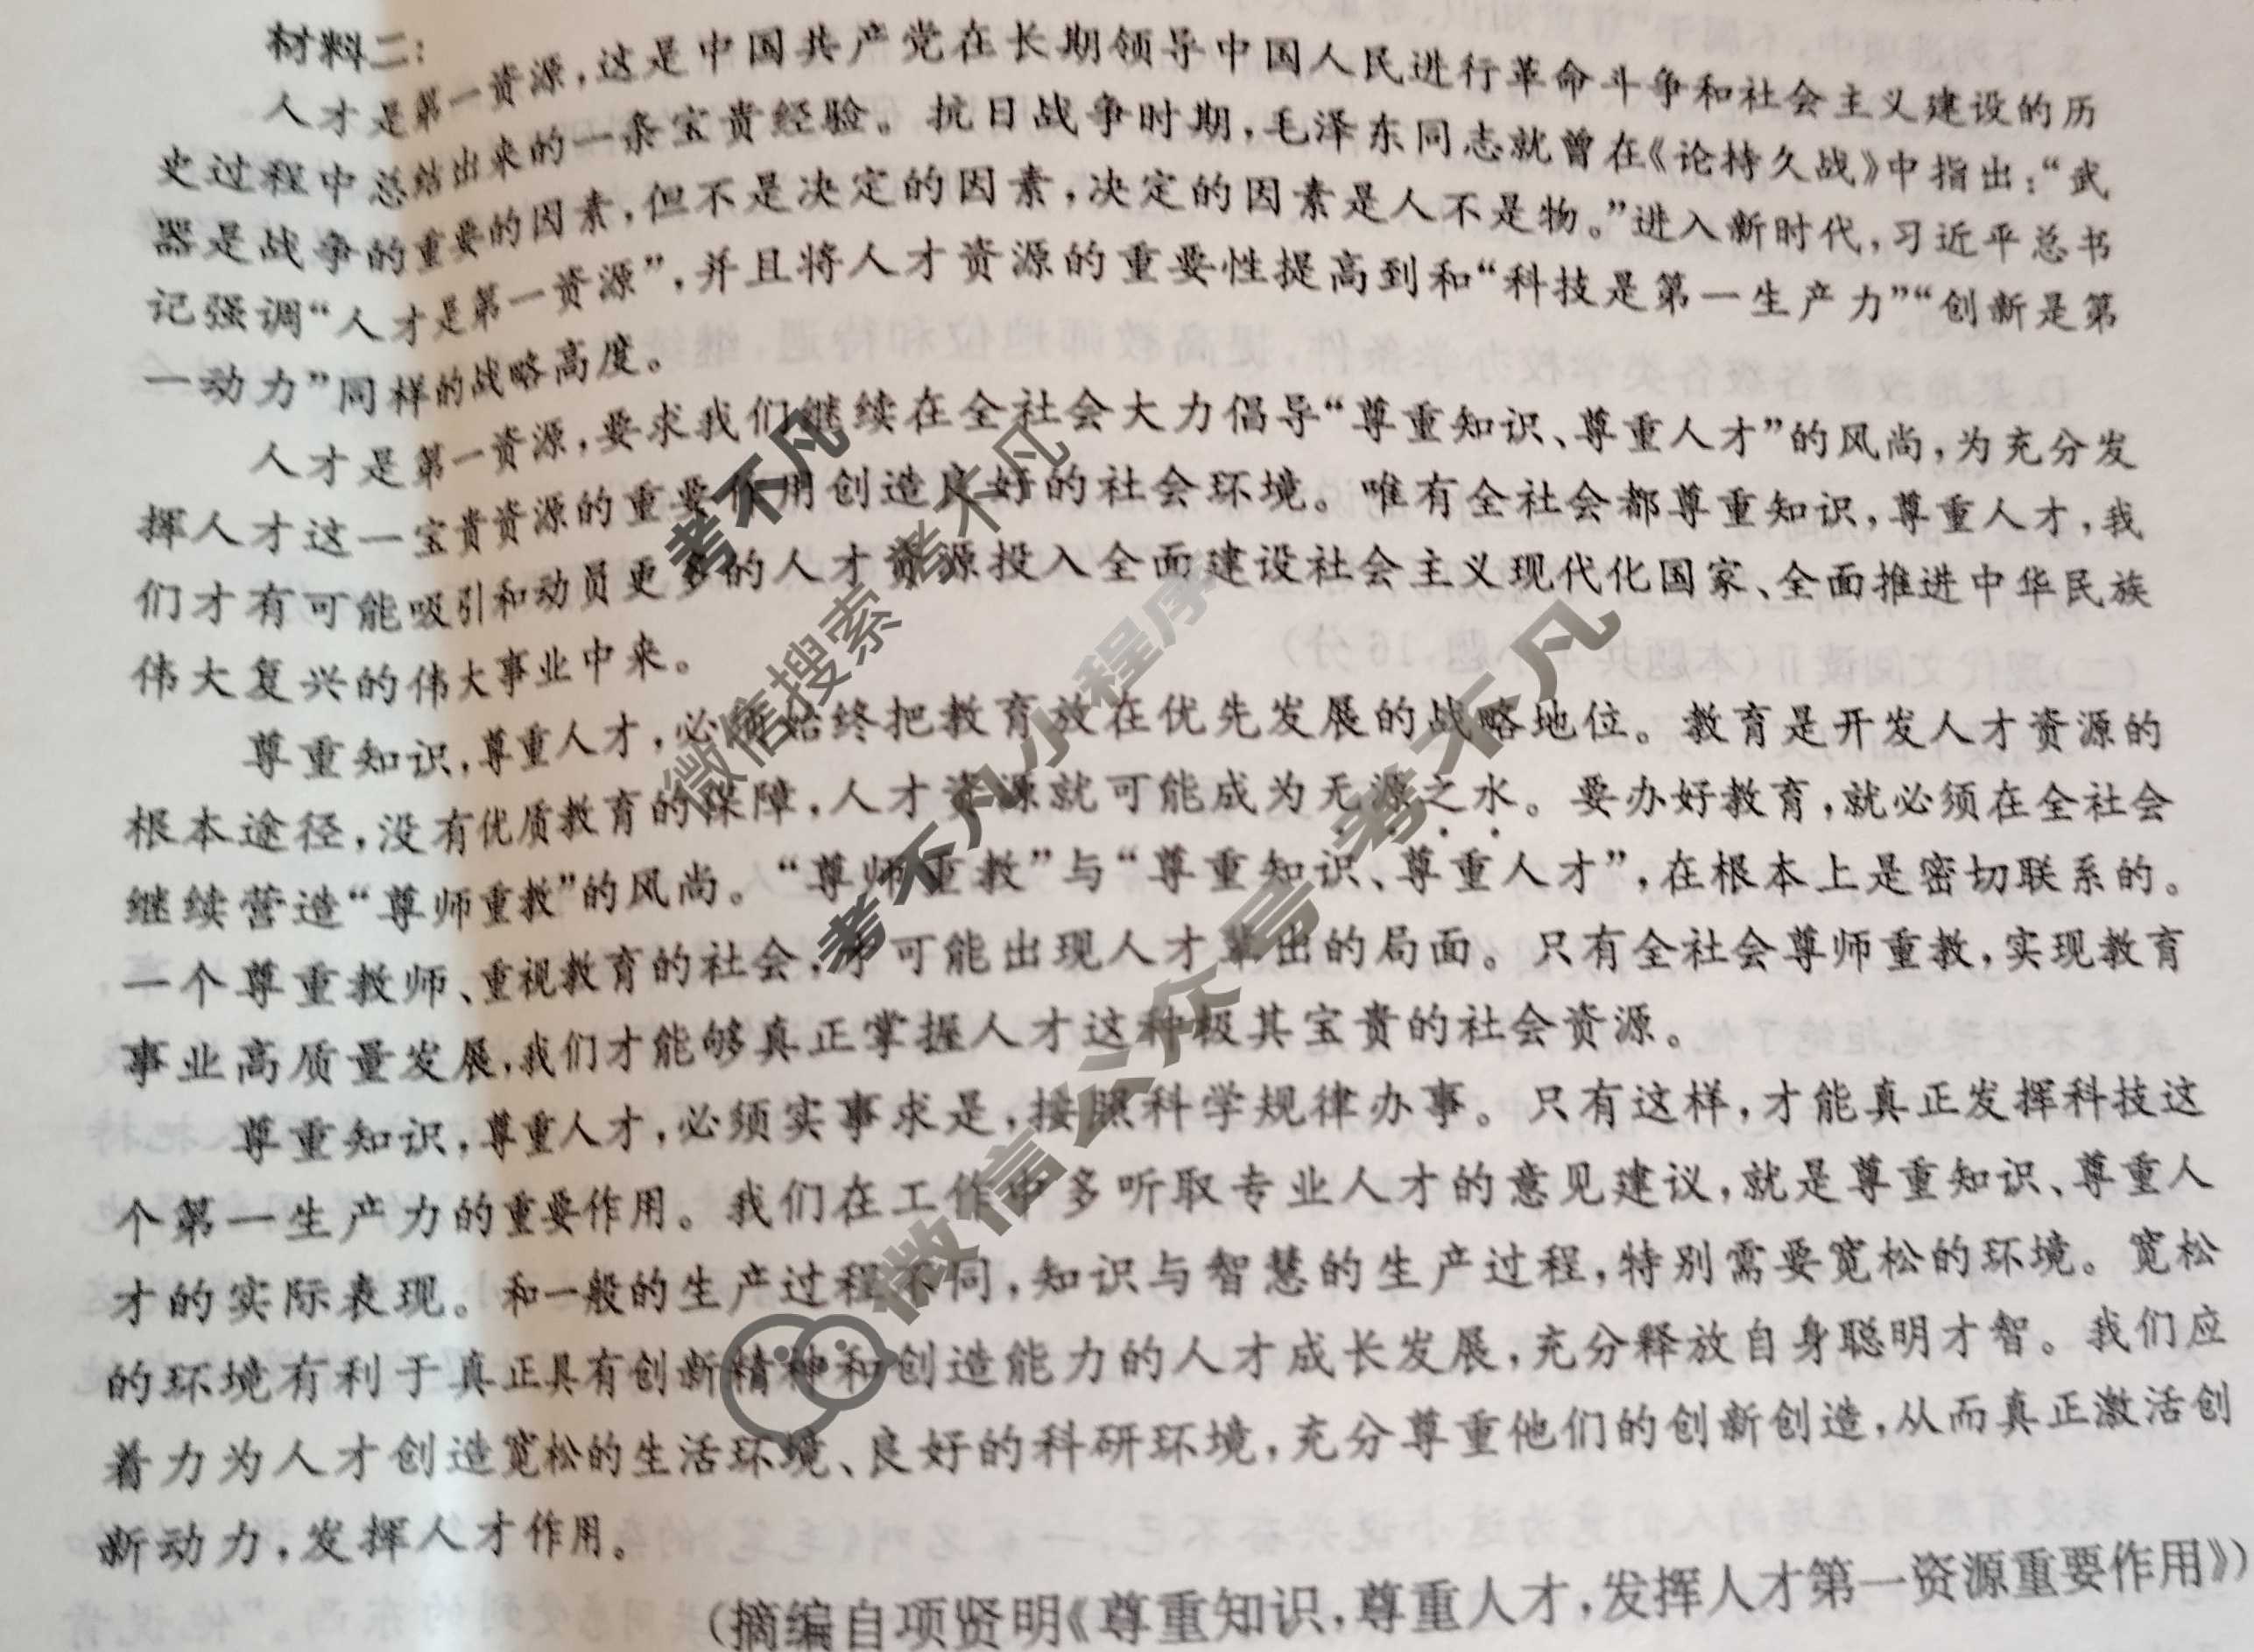 材料二：
人才是第一资源，这是中国共产党在长期领导中国人民进行革命斗争和社会主义建设的历
史过程中总结出来的一条宝贵经验。抗日战争时期，毛泽东同志就曾在《论持久战》中指出：“武
器是战争的重要的因素，但不是决定的因素，决定的因素是人不是物。”进入新时代，习近平总书
记强调“人才是第一资源”，并且将人才资源的重要性提高到和“科技是第一生产力”“创新是第
一动力”同样的战略高度。
人才是第一资源，要求我们继续在全社会大力倡导“尊重知识、尊重人才”的风尚，为充分发
挥人才这一宝贵资源的重要作用创造良好的社会环境。唯有全社会都尊重知识，尊重人才，我
们才有可能吸引和动员更多的人才资源投入全面建设社会主义现代化国家、全面推进中华民族
伟大复兴的伟大事业中来。
尊重知识，尊重人才，必须始终把教育放在优先发展的战略地位。教育是开发人才资源的
根本途径，没有优质教育的保障，人才资源就可能成为无源之水。要办好教育，就必须在全社会
继续营造“尊师重教”的风尚。“尊师重教”与“尊重知识、尊重人才”，在根本上是密切联系的。
一个尊重教师、重视教育的社会，才可能出现人才辈出的局面。只有全社会尊师重教，实现教育
事业高质量发展，我们才能够真正掌握人才这种极其宝贵的社会资源。
尊重知识，尊重人才，必须实事求是，按照科学规律办事。只有这样，才能真正发挥科技这
个第一生产力的重要作用。我们在工作中多听取专业人才的意见建议，就是尊重知识、尊重人
才的实际表现。和一般的生产过程不同，知识与智慧的生产过程，特别需要宽松的环境。宽松
的环境有利于真正具有创新精神和创造能力的人才成长发展，充分释放自身聪明才智。我们应
着力为人才创造宽松的生活环境、良好的科研环境，充分尊重他们的创新创造，从而真正激活创
新动力，发挥人才作用。
（摘编自项贤明《尊重知识，尊重人才，发挥人才第一资源重要作用》）
考不凡
微信搜索 考不凡
考不凡小程序
微信公众号 考不凡